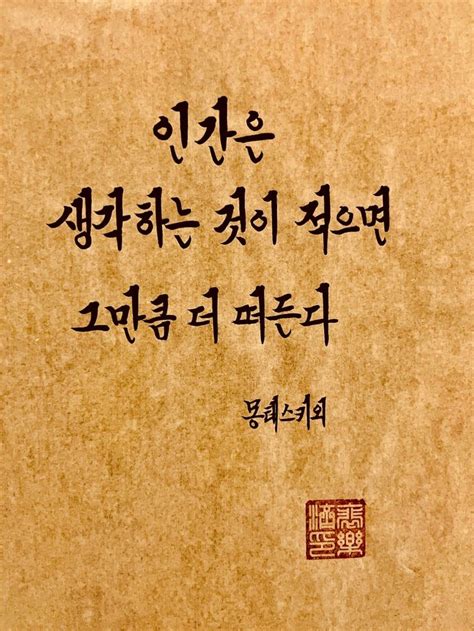 인간은
생각하는 것이 적으면
그만큼 더 떠든다
몽테스키외